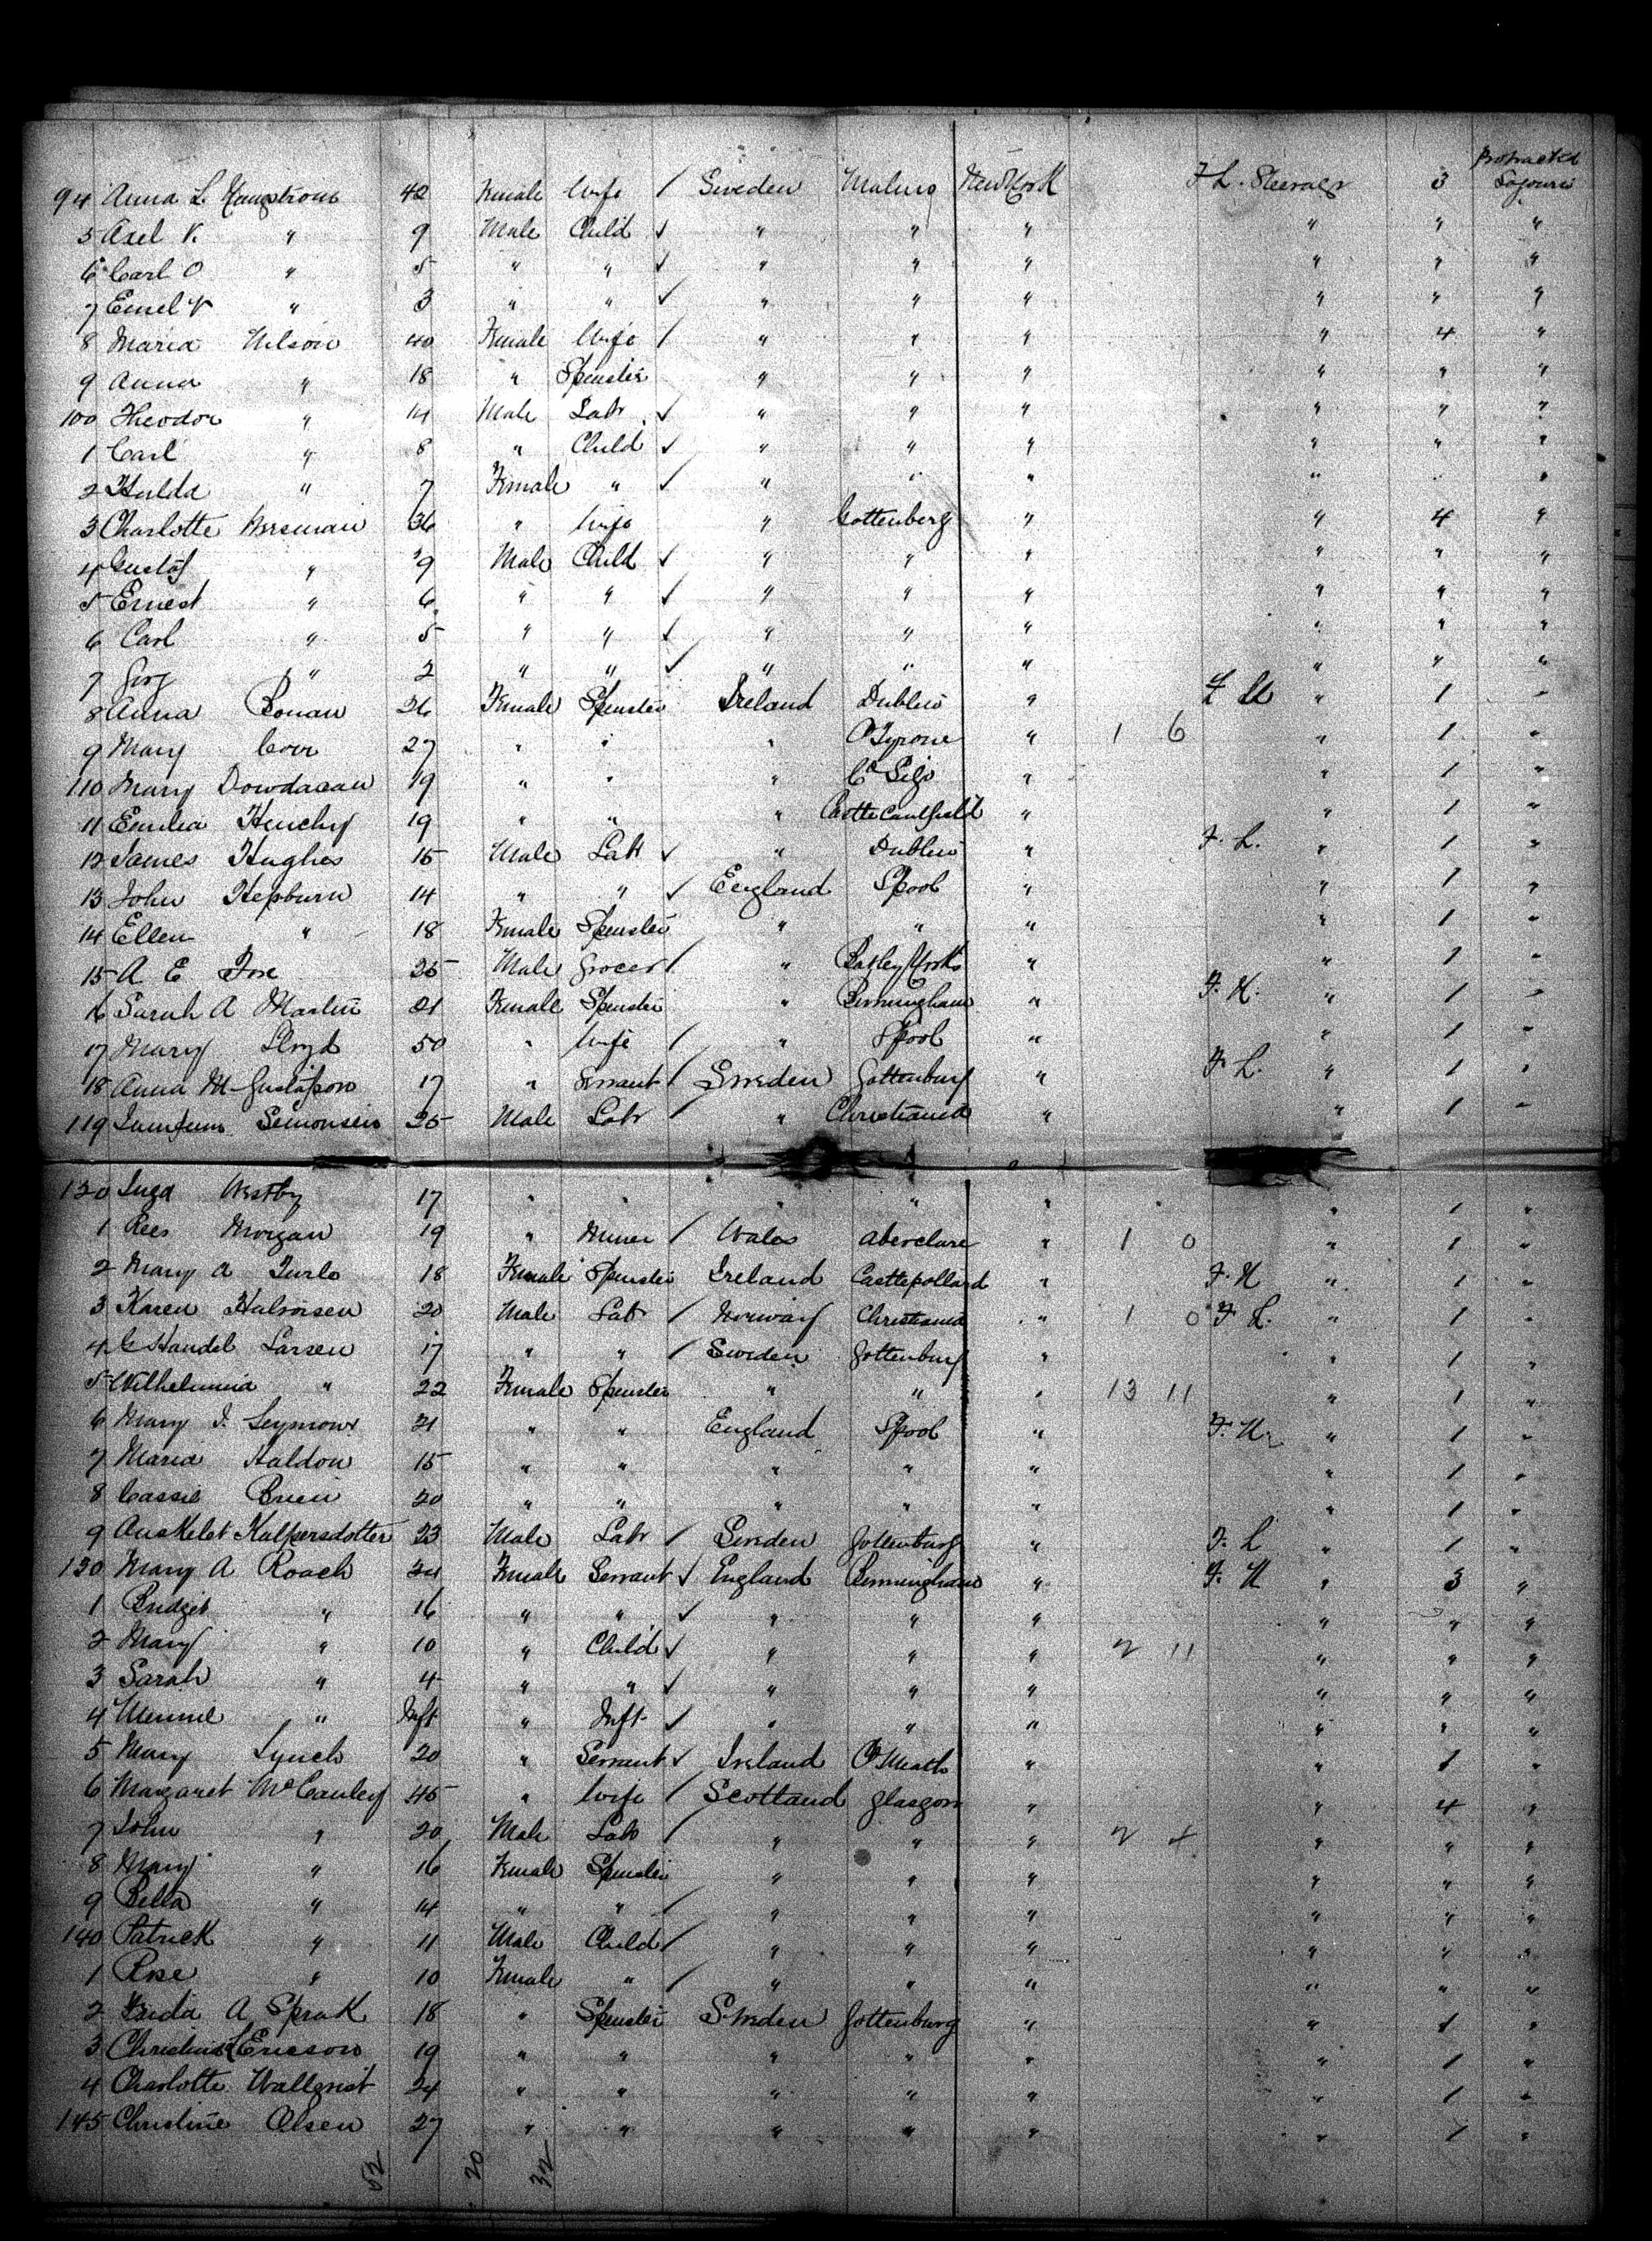 Protracted
94 Anna L. 42 Female Wife / Sweden Malmo New York F L. Steerage 3 Sojourn
5 Axel V. " 9 Male Child ✓ " " " " " "
6 Carl O " 5 " " ✓ " " " " " "
7 Emel V " 3 " " ✓ " " " " " "
8 Maria Nilson 40 Female Wife / " " " " 4 "
9 Anna " 18 " Spinster " " " " " "
100 Theodor " 14 Male Labr ✓ " " " " " "
1 Carl " 8 " Child ✓ " " " " " "
2 Hulda " 7 Female " ✓ " " " " " "
3 Charlotte 36 " Wife " Gottenberg " " 4 "
4 Gustaf " 9 Male Child ✓ " " " " " "
5 Ernest " 6 " " ✓ " " " " " "
6 Carl " 5 " " ✓ " " " " " "
7 " 2 " " ✓ " " " " " "
8 Anna Ronan 26 Female Spinster Ireland Dublin " " 1 "
9 Mary 27 " " " Co Tyrone " 1 6 " 1 "
110 Mary 19 " " " Co Sligo " " 1 "
11 Emilia Henchy 19 " " " Castle Caulfield " " 1 "
12 James Hughes 15 Male Labr ✓ " Dublin " F. L. " 1 "
13 John Hepburn 14 " " ✓ England Lpool " " 1 "
14 Ellen " 18 Female Spinster " " " " 1 "
15 A E Fox 25 Male Grocer / " " " 1 "
16 Sarah A Martin 21 Female Spinster " Birmingham " " 1 "
17 Mary Lloyd 50 " Wife / " Lpool " " 1 "
18 Anna M Gustafson 17 " Servant / Sweden Gottenburg " F. L. " 1 "
119 Simonsen 25 Male Labr / " Christiania " " 1 "
120 Inga Westby 17 " " " " " " 1 "
1 Rees Morgan 19 " Miner / Wales Aberdare " 1 0 " 1 "
2 Mary A 18 Female Spinster Ireland Castlepollard " " 1 "
3 Karen Halvorsen 20 Male Labr / Norway Christiania " 1 0 F. L. " 1 "
4 Larsen 17 " " / Sweden Gottenburg " " 1 "
5 Wilhelmina " 22 Female Spinster " " " 13 11 " 1 "
6 Mary J. Seymour 21 " " England Lpool " " 1 "
7 Maria Haldon 15 " " " " " " 1 "
8 Cassie Brien 20 " " " " " " 1 "
9 23 Male Labr / Sweden Gottenburg " F. L " 1 "
130 Mary A Roach 24 Female Servant ✓ England Birmingham " " 3 "
1 Bridget " 16 " " ✓ " " " " " "
2 Mary " 10 " Child ✓ " " " 2 11 " " "
3 Sarah " 4 " " ✓ " " " " " "
4 " Inft " Inft ✓ " " " " " "
5 Mary Lynch 20 " Servant ✓ Ireland Co Meath " " 1 "
6 Margaret McCauley 45 " Wife / Scotland Glasgow " " 4 "
7 John " 20 Male Labr / " " " 2 4 " " "
8 Mary " 16 Female Spinster " " " " " "
9 Bella " 14 " " / " " " " " "
140 Patrick " 11 Male Child / " " " " " "
1 Rose " 10 Female " / " " " " " "
2 A Sprak 18 " Spinster Sweden Gottenburg " " 1 "
3 Ericson 19 " " " " " " 1 "
4 Charlotte Wallqvist 24 " " " " " " 1 "
145 Christine Olsen 27 " " " " " " 1 "
52 20 32